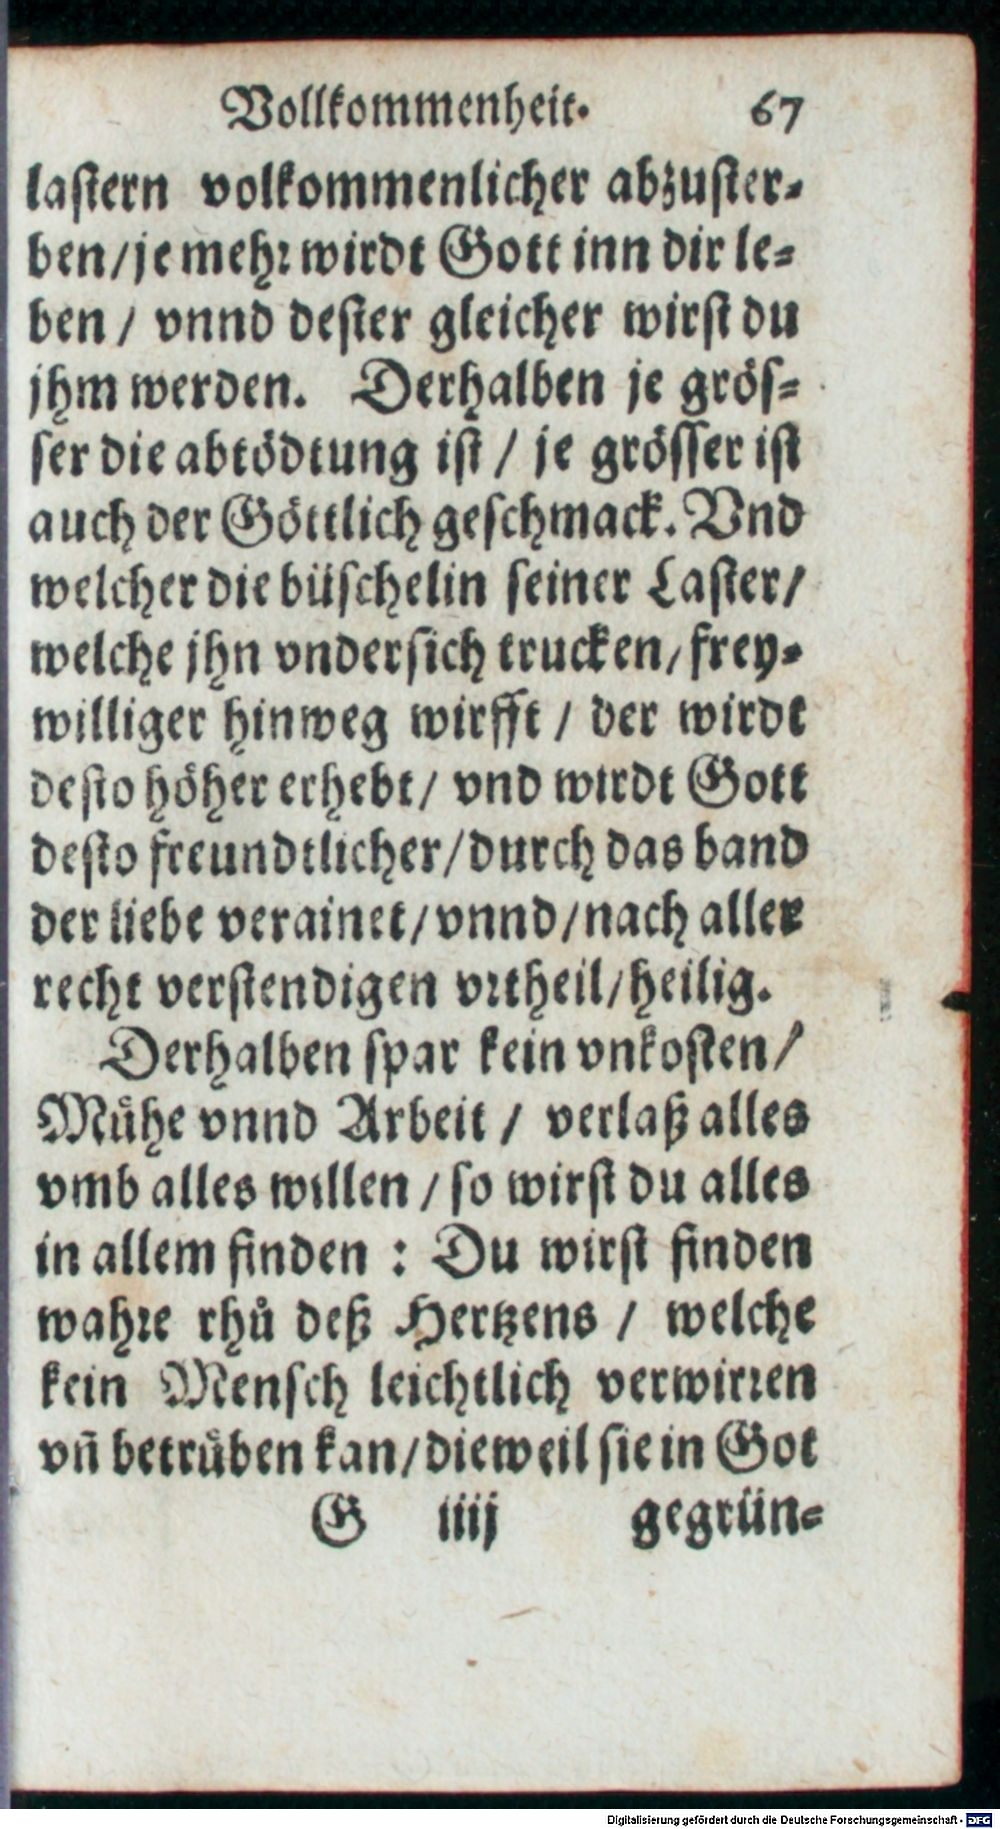 Vollkommenheit. 67
lastern volkommenlicher abzuster-
ben/je mehr wirdt Gott inn dir le-
ben / vnnd dester gleicher wirst du
jhm werden. Derhalben je grös-
ser die abtödtung ist / je grösser ist
auch der Göttlich geschmack. Vnd
welcher die büschelin seiner Laster/
welche jhn vndersich trucken/frey-
williger hinweg wirfft / der wirdt
desto höher erhebt/ vnd wirdt Gott
desto freundtlicher/durch das band
der liebe verainet/vnnd/nach aller
recht verstendigen vrtheil/heilig.
Derhalben spar kein vnkosten/
Můhe vnnd Arbeit / verlaß alles
vmb alles willen / so wirst du alles
in allem finden : Du wirst finden
wahre rhů deß Hertzens / welche
kein Mensch leichtlich verwirren
vñ betrůben kan/dieweil sie in Got
G iiij gegrün-
Digitalisierung gefördert durch die Deutsche Forschungsgemeinschaft - DFG